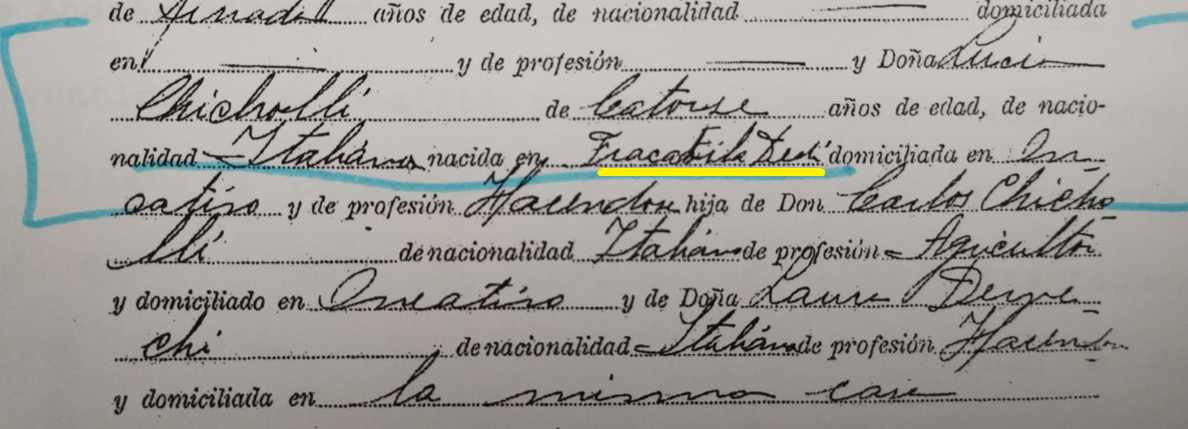 de años de edad, de nacionalidad domiciliada
en y de profesión y Doña Lucia
Chicholli de Catorse años de edad, de nacio-
nalidad Italiana nacida en domiciliada en
y de profesión hija de Don Carlos Chicho
lli de nacionalidad Italiano de profesión Agricultor
y domiciliado en y de Doña Laura
chi de nacionalidad Italiana de profesión
y domiciliada en la misma casa